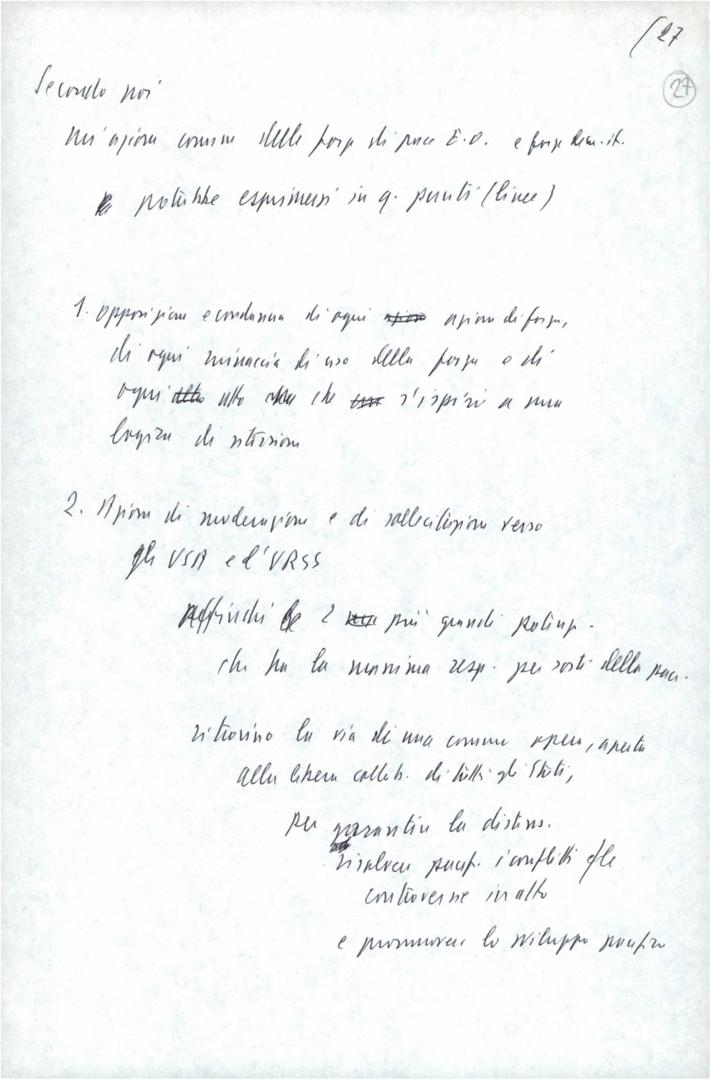 /27
27
Secondo noi
un'azione comune delle forze di pace E.O. e forze dem. it.
potrebbe esprimersi in q. punti (linee)
1. opposizione e condanna di ogni azione di forza,
di ogni minaccia di uso della forza e di
ogni atto che s'ispiri a una
logica di ritorsione
2. Azione di moderazione e di sollecitazione verso
gli USA e l'URSS
Affinché le 2 più grandi potenze
che ha la massima resp. per sorti della pace.
ritrovino la via di una comune opera, aperta
alla libera collab. di tutti gli Stati,
per garantire la distens.
risolvere pacif. i conflitti e le
controversie in atto
e promuovere lo sviluppo pacifico